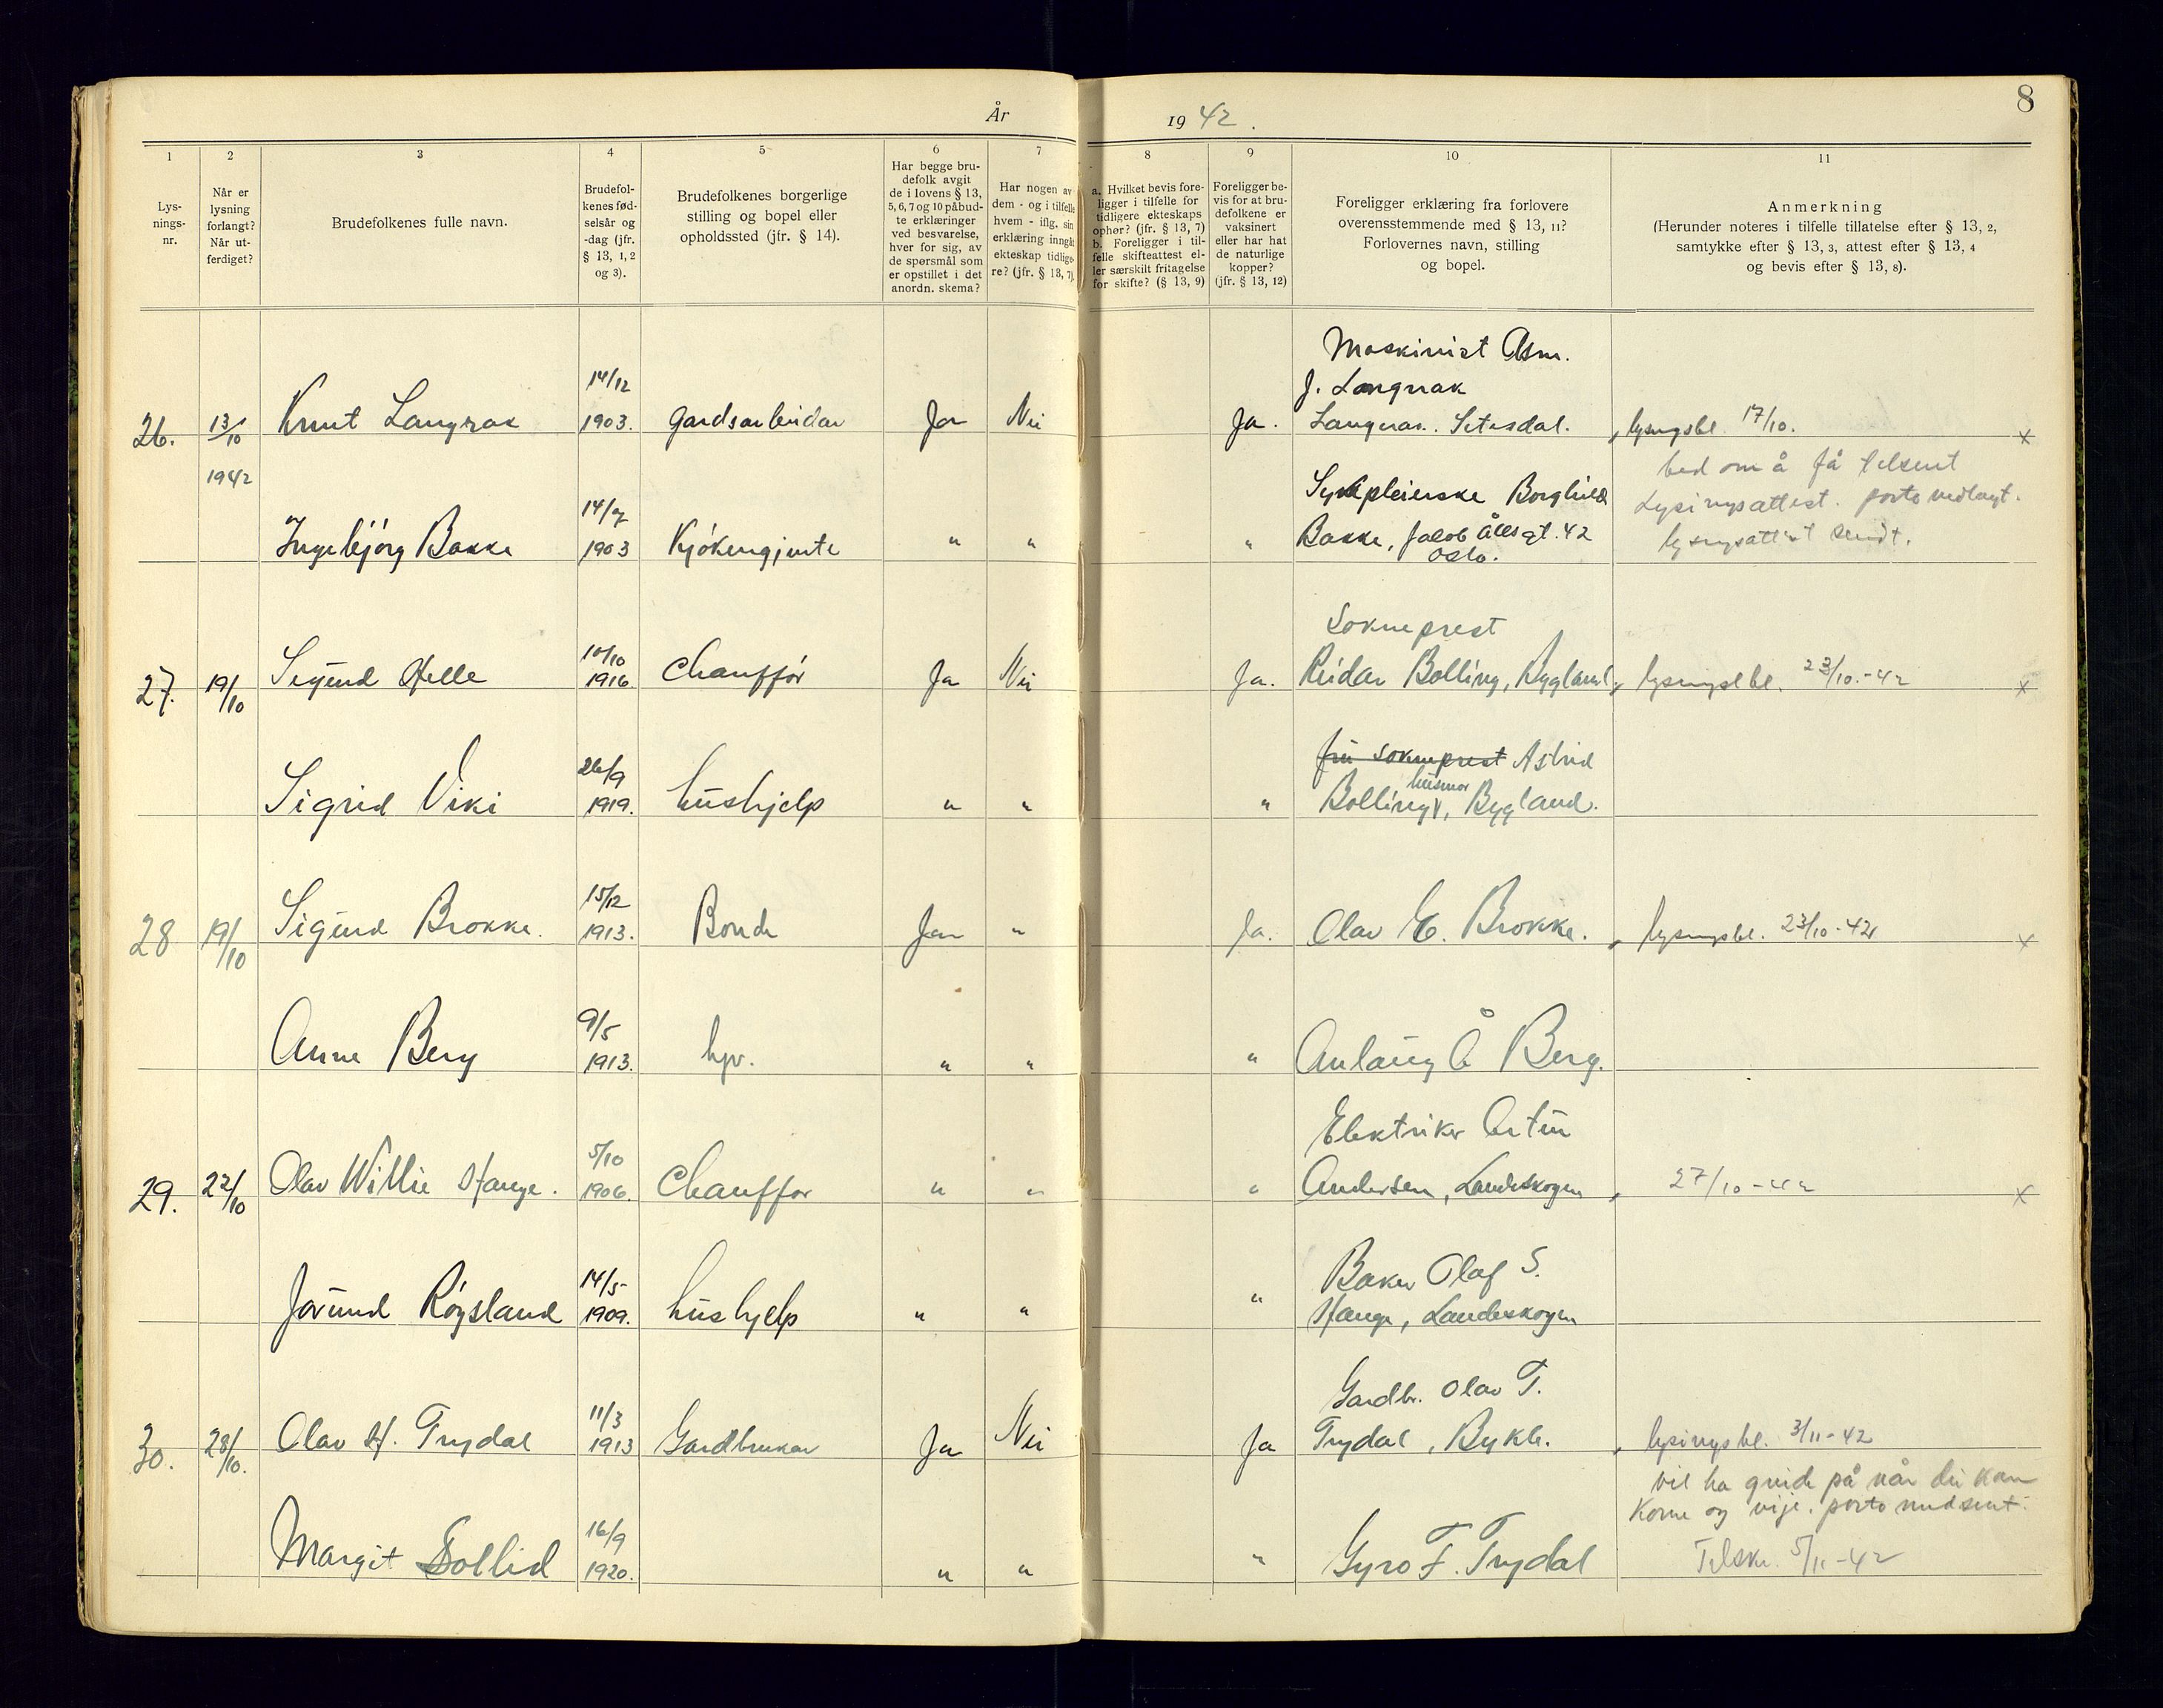 8
År 1942.
1 2 3 4 5 6 7 8 9 10 11
Lys-
nings-
nr.
Når er
lysning
forlangt?
Når ut-
ferdiget?
Brudefolkenes fulle navn.
Brudefol-
kenes fød-
selsår og
-dag (jfr.
§ 13, 1, 2
og 3).
Brudefolkenes borgerlige
stilling og bopel eller
opholdssted (jfr. § 14).
Har begge bru-
defolk avgit
de i lovens § 13,
5, 6, 7 og 10 påbud-
te erklæringer
ved besvarelse,
hver for sig, av
de spørsmål som
er opstillet i det
anordn. skema?
Har nogen av
dem - og i tilfelle
hvem - iflg. sin
erklæring inngåt
ekteskap tidlige-
re? (jfr. § 13, 7).
a. Hvilket bevis fore-
ligger i tilfelle for
tidligere ekteskaps
ophør? (jfr. § 13, 7)
b. Foreligger i til-
felle skifteattest el-
ler særskilt fritagelse
for skifte? (§ 13, 9)
Foreligger be-
vis for at bru-
defolkene er
vaksinert
eller har hat
de naturlige
kopper?
(jfr. § 13, 12)
Foreligger erklæring fra forlovere
overensstemmende med § 13, 11?
Forlovernes navn, stilling
og bopel.
Anmerkning
(Herunder noteres i tilfelle tillatelse efter § 13, 2,
samtykke efter § 13, 3, attest efter § 13, 4
og bevis efter § 13, 8).
26. 13/10 1942 Knut Langrak 14/12 1903. Gardsarbeidar Ja Nei Ja.
Maskinist Asm.
J. Langrak
Langrak. Setesdal.
lysingsbl. 17/10. x
bed om å få tilsent
Lysingsattest. porto vedlagt.
lysingsattest sendt.
Ingebjörg Bakke 14/7 1903 Kjökengjente " " "
Sykepleierske Borghild
Bakke, Jacob Ålls gt. 42
Oslo.
27. 19/10 Sigurd Helle 10/10 1916. Chaufför Ja Nei Ja.
Sokneprest
Reidar Bolling, Bygland,
lysingsbl. 23/10.-42 x
Sigrid Viki 26/9 1919. hushjelp " " "
fru sokneprest Astrid
husmor
Bolling, Bygland.
28 19/10 Sigurd Brokke. 15/12 1913. Bonde Ja " Ja.
Olav E. Brokke.
lysingsbl. 23/10-42 x
Anne Berg 9/5 1913. hjv. " " "
Anlaug Å Berg.
29. 22/10 Olav Willie Hauge. 5/10 1906. Chauffør " " "
Elektriker Artur
Andersen, Landeskogen
27/10-42 x
Jorunn Röysland 14/5 1909. hushjelp " " "
Baker Olaf S.
Hauge, Landeskogen
30. 28/10. Olav H. Trydal 11/3 1913 Gardbrukar Ja Nei Ja
Gardbr. Olav T.
Trydal, Bykle.
lysingsbl. 3/11-42
vil ha greide på når dei kan
kome og vije. porto medsent.
Tilskr. 5/11-42
Margit Dollid 16/9 1920. " " "
Gyro F. Trydal